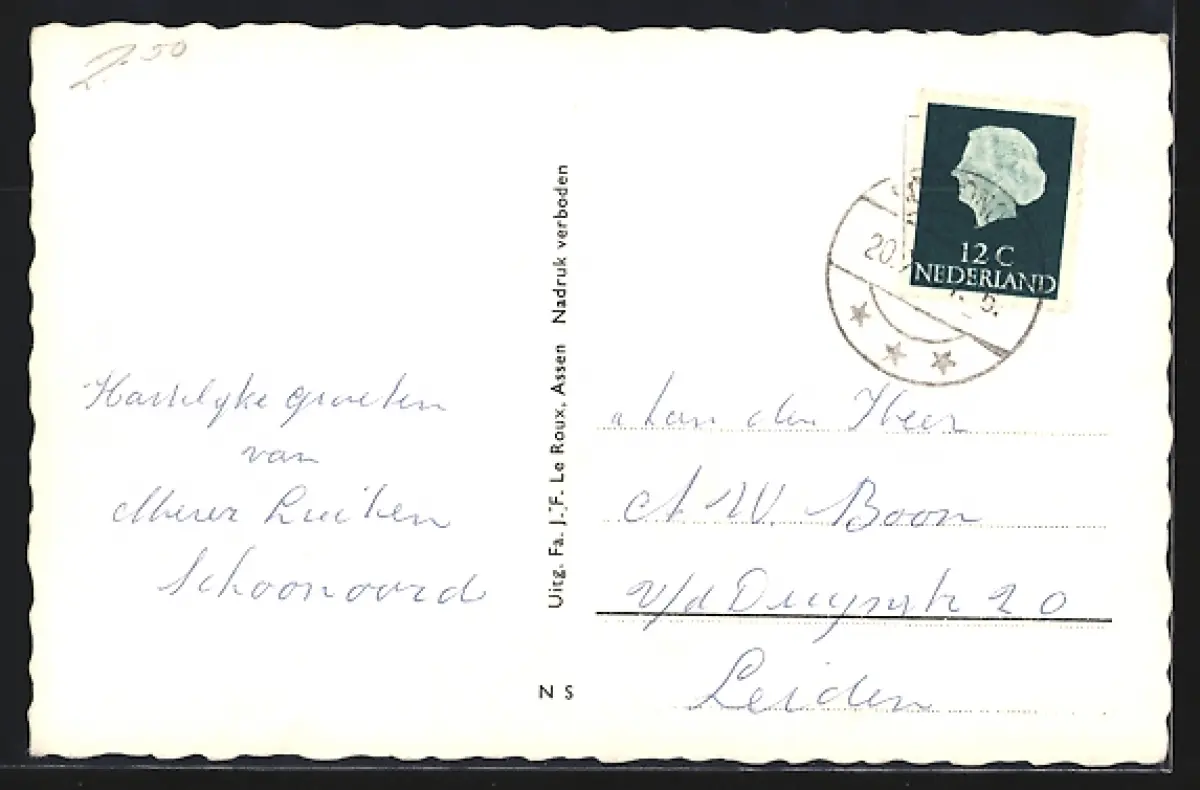 2.50
Hartelyke groeten
van
Meier Luiken
Schoonoord
Uitg. Fa. J. F. Le Roux, Assen Nadruk verboden
N S
12 C
NEDERLAND
20.
Aan den Heer
A W. Boon
v/d Duynstr 20
Leiden